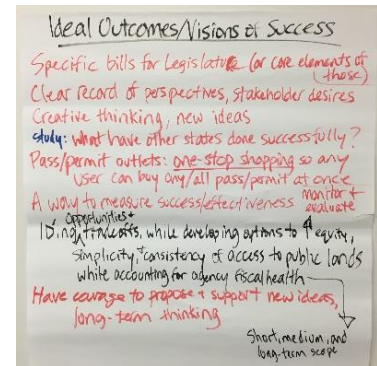 Ideal Outcomes/Visions of Success
Specific bills for Legislature (or core elements of
those)
Clear record of perspectives, stakeholder desires
Creative thinking, new ideas
study: what have other states done successfully?
Pass/permit outlets: one-stop shopping so any
user can buy any/all pass/permit at once
A way to measure success/effectiveness monitor +
evaluate
Opportunities +
ID'ing tradeoffs, while developing options to ↑ equity,
simplicity, + consistency of access to public lands
while accounting for agency fiscal health
Have courage to propose + support new ideas,
long-term thinking
Short, medium, and
long-term scope